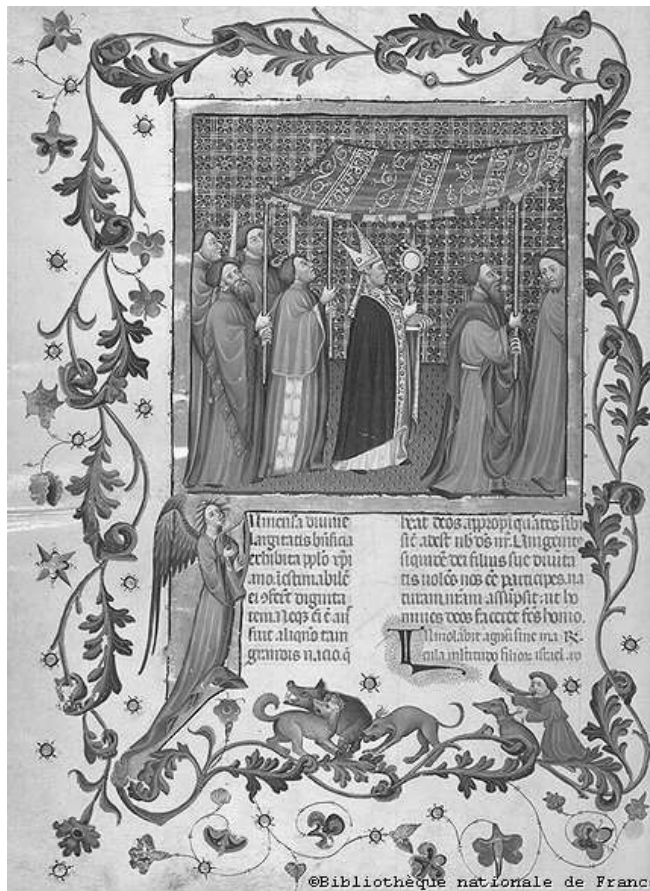 Immensa diuine
largitatis bñficia
exhibita pplo xpi
ano. inestimabilē
ei ɔferūt dignita
tem. Neqꝫ ei ē aut
fuit aliqñ tam
grandis nacio. q̄
beat deos appropīquātes sibi
sic̄ adest nob̄ ds̄ nr̄. Unigenitꝰ
siquidē dei filius sue diuini
tatis volēs nos ēē participes. na
turam nr̄am assūpsit: ut ho
mines deos faceret fc̄s homo.
Immolabit agnū
multitudo filior israel.
©Bibliothèque nationale de Franc